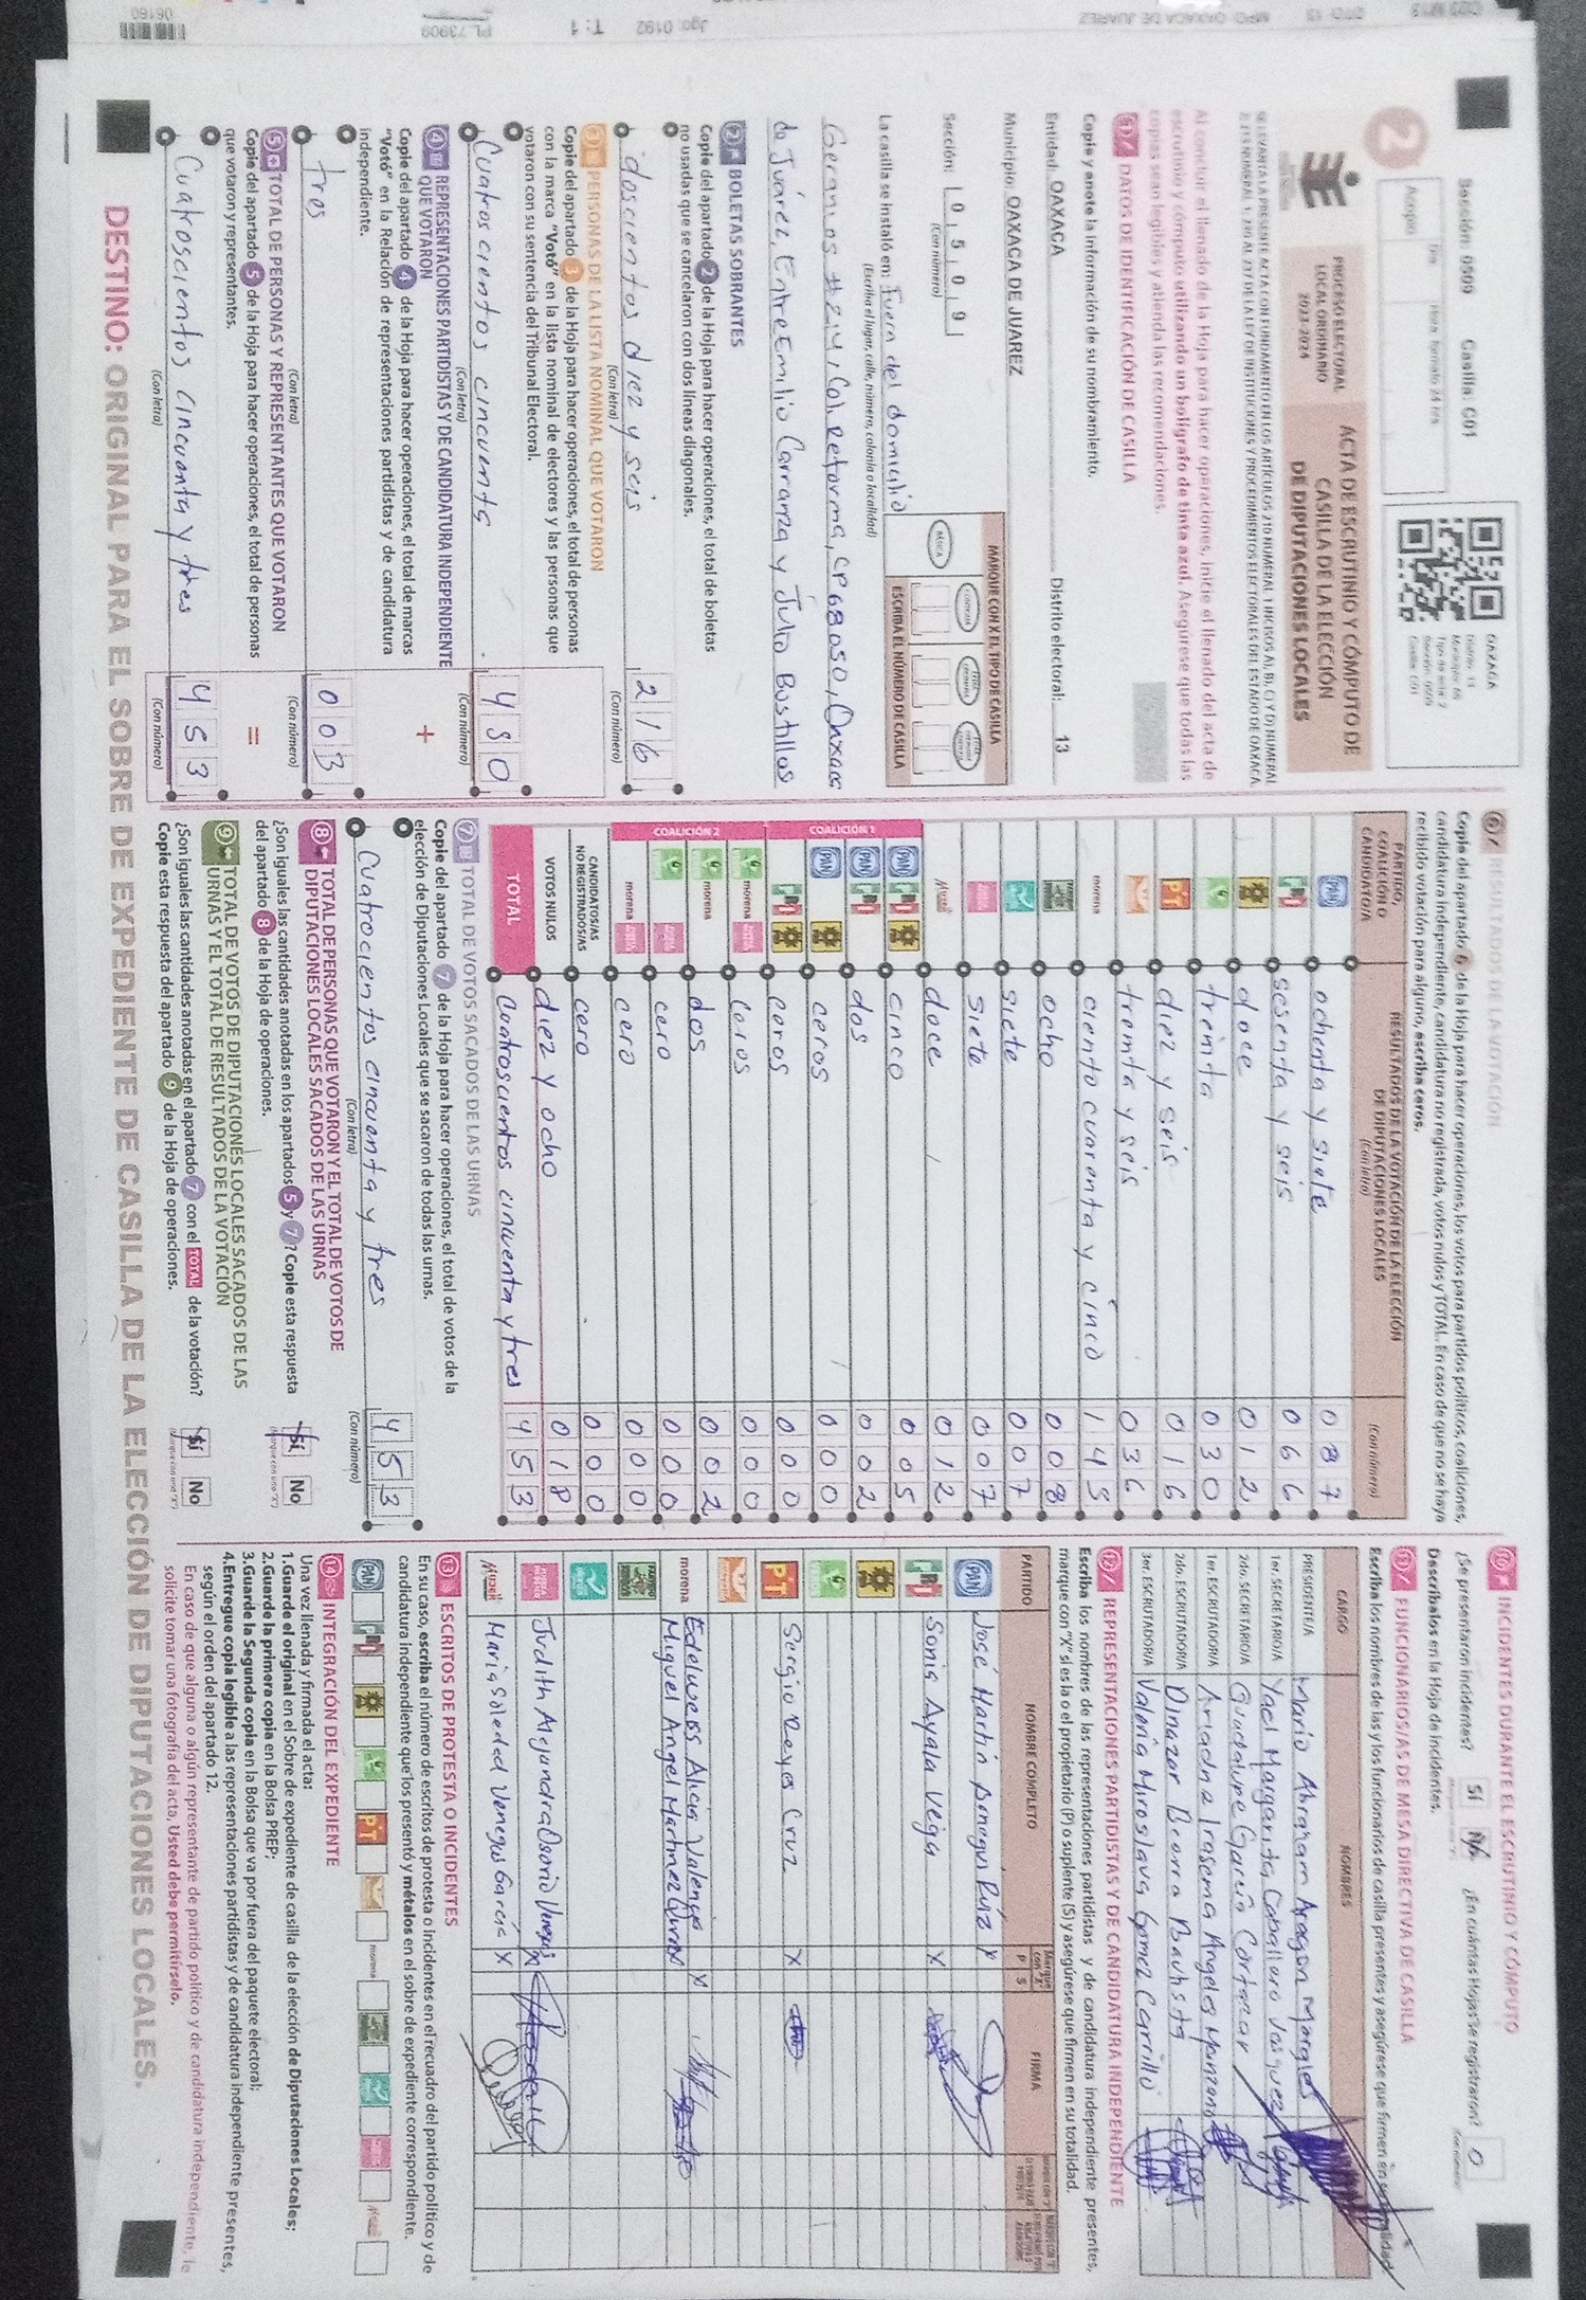 Sección: 0509 Casilla: C01
2
Acopio
Hora formato 24 hrs
OAXACA
PROCESO ELECTORAL
LOCAL ORDINARIO
2023-2024
ACTA DE ESCRUTINIO Y CÓMPUTO DE
CASILLA DE LA ELECCIÓN
DE DIPUTACIONES LOCALES
Al concluir el llenado de la Hoja para hacer operaciones, inicie el llenado del acta de
escrutinio y cómputo utilizando un bolígrafo de tinta azul. Asegúrese que todas las
copias sean legibles y atienda las recomendaciones.
1 DATOS DE IDENTIFICACIÓN DE CASILLA
Copie y anote la información de su nombramiento.
Entidad: OAXACA Distrito electoral: 13
Municipio: OAXACA DE JUAREZ
Sección: 0 5 0 9
(Con número)
MARQUE CON X EL TIPO DE CASILLA
BÁSICA
ESCRIBA EL NÚMERO DE CASILLA
La casilla se instaló en: Fuera del domicilio
(Escriba el lugar, calle, número, colonia o localidad)
Geranios #214, Col. Reforma, CP 68050, Oaxaca
de Juárez, Entre Emilio Carranza y Julio Bustillos
2 BOLETAS SOBRANTES
Copie del apartado 2 de la Hoja para hacer operaciones, el total de boletas
no usadas que se cancelaron con dos líneas diagonales.
doscientos diez y seis 2 1 6
(Con letra) (Con número)
3 PERSONAS DE LA LISTA NOMINAL QUE VOTARON
Copie del apartado 3 de la Hoja para hacer operaciones, el total de personas
con la marca "Votó" en la lista nominal de electores y las personas que
votaron con su sentencia del Tribunal Electoral.
Cuatroscientos cincuenta 4 5 0
(Con letra) (Con número)
4 REPRESENTACIONES PARTIDISTAS Y DE CANDIDATURA INDEPENDIENTE
QUE VOTARON
+
Copie del apartado 4 de la Hoja para hacer operaciones, el total de marcas
"Votó" en la Relación de representaciones partidistas y de candidatura
independiente.
tres 0 0 3
(Con letra) (Con número)
5 TOTAL DE PERSONAS Y REPRESENTANTES QUE VOTARON
=
Copie del apartado 5 de la Hoja para hacer operaciones, el total de personas
que votaron y representantes.
Cuatroscientos cincuenta y tres 4 5 3
(Con letra) (Con número)
6 RESULTADOS DE LA VOTACIÓN
Copie del apartado 6 de la Hoja para hacer operaciones, los votos para partidos políticos, coaliciones,
candidatura independiente, candidatura no registrada, votos nulos y TOTAL. En caso de que no se haya
recibido votación para alguno, escriba ceros.
PARTIDO, COALICIÓN O CANDIDATO/A
RESULTADOS DE LA VOTACIÓN DE LA ELECCIÓN DE DIPUTACIONES LOCALES
(Con letra) (Con número)
PAN ochenta y siete 0 8 7
PRI sesenta y seis 0 6 6
PRD doce 0 1 2
treinta 0 3 0
PT diez y seis 0 1 6
treinta y seis 0 3 6
morena ciento cuarenta y cinco 1 4 5
ocho 0 0 8
siete 0 0 7
siete 0 0 7
doce 0 1 2
COALICIÓN 1
PAN PRI PRD cinco 0 0 5
PAN PRI dos 0 0 2
PAN PRD ceros 0 0 0
PRI PRD ceros 0 0 0
COALICIÓN 2
morena ceros 0 0 0
morena dos 0 0 2
cero 0 0 0
morena cero 0 0 0
CANDIDATOS/AS NO REGISTRADOS/AS cero 0 0 0
VOTOS NULOS diez y ocho 0 1 8
TOTAL Cuatroscientos cincuenta y tres 4 5 3
7 TOTAL DE VOTOS SACADOS DE LAS URNAS
Copie del apartado 7 de la Hoja para hacer operaciones, el total de votos de la
elección de Diputaciones Locales que se sacaron de todas las urnas.
Cuatrocientos cincuenta y tres 4 5 3
(Con letra) (Con número)
8 TOTAL DE PERSONAS QUE VOTARON Y EL TOTAL DE VOTOS DE
DIPUTACIONES LOCALES SACADOS DE LAS URNAS
¿Son iguales las cantidades anotadas en los apartados 5 y 7? Copie esta respuesta
del apartado 8 de la Hoja de operaciones.
Sí No
9 TOTAL DE VOTOS DE DIPUTACIONES LOCALES SACADOS DE LAS
URNAS Y EL TOTAL DE RESULTADOS DE LA VOTACIÓN
¿Son iguales las cantidades anotadas en el apartado 7 con el TOTAL de la votación?
Copie esta respuesta del apartado 9 de la Hoja de operaciones.
Sí No
10 INCIDENTES DURANTE EL ESCRUTINIO Y CÓMPUTO
¿Se presentaron incidentes? Sí No ¿En cuántas Hojas se registraron? 0
Descríbalos en la Hoja de incidentes.
11 FUNCIONARIOS/AS DE MESA DIRECTIVA DE CASILLA
Escriba los nombres de las y los funcionarios de casilla presentes y asegúrese que firmen en su totalidad.
CARGO NOMBRES
PRESIDENTE/A Mario Abraham Aragon Margles
1er. SECRETARIO/A Yael Margarita Caballero Vasquez
2do. SECRETARIO/A Guadalupe García Cortazar
1er. ESCRUTADOR/A Ariadna Irasema Angeles Manzano
2do. ESCRUTADOR/A Dinazar Becerra Bauhsta
3er. ESCRUTADOR/A Valeria Miroslava Gomez Carrillo
12 REPRESENTACIONES PARTIDISTAS Y DE CANDIDATURA INDEPENDIENTE
Escriba los nombres de las representaciones partidistas y de candidatura independiente presentes,
marque con "X" si es la o el propietario (P) o suplente (S) y asegúrese que firmen en su totalidad.
PARTIDO NOMBRE COMPLETO Marque con "X" P S FIRMA
PAN José Martin Borregui Ruíz X
PRI Sonia Ayala Veiga X
PT Sergio Reyes Cruz X
morena Edelweiss Alicia Valencia
Miguel Angel Martinez X
Judith Alejandra Osorio Venegas X
Maria Soledad Venegas García X
13 ESCRITOS DE PROTESTA O INCIDENTES
En su caso, escriba el número de escritos de protesta o incidentes en el recuadro del partido político y de
candidatura independiente que los presentó y métalos en el sobre de expediente correspondiente.
PAN PRI PRD PT morena
14 INTEGRACIÓN DEL EXPEDIENTE
Una vez llenada y firmada el acta:
1.Guarde el original en el Sobre de expediente de casilla de la elección de Diputaciones Locales;
2.Guarde la primera copia en la Bolsa PREP;
3.Guarde la Segunda copia en la Bolsa que va por fuera del paquete electoral;
4.Entregue copia legible a las representaciones partidistas y de candidatura independiente presentes,
según el orden del apartado 12.
En caso de que alguna o algún representante de partido político y de candidatura independiente, le
solicite tomar una fotografía del acta, Usted debe permitírselo.
DESTINO: ORIGINAL PARA EL SOBRE DE EXPEDIENTE DE CASILLA DE LA ELECCIÓN DE DIPUTACIONES LOCALES.